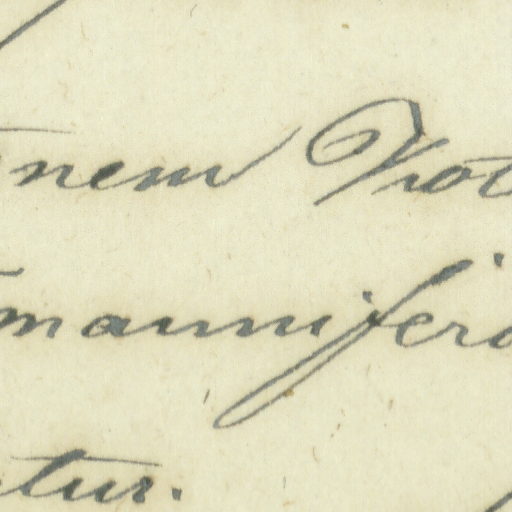 nem Not
mannifero
tur.